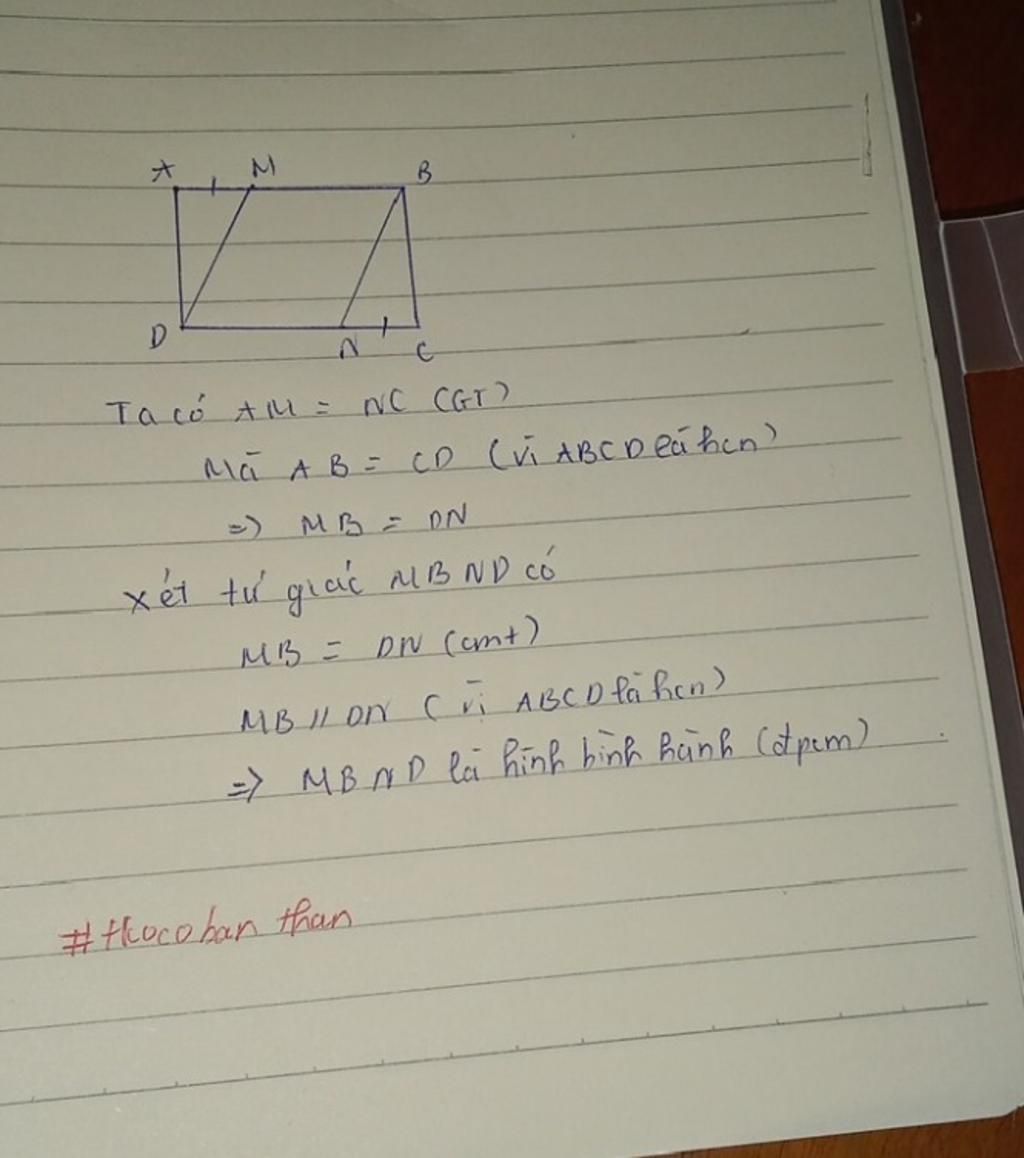 A M B
D N C
Ta có AM = NC (GT)
Mà AB = CD (vì ABCD là hcn)
=> MB = DN
xét tứ giác MBND có
MB = DN (cmt)
MB // DN (vì ABCD là hcn)
=> MBND là hình bình hành (đpcm)
#tkocoban than